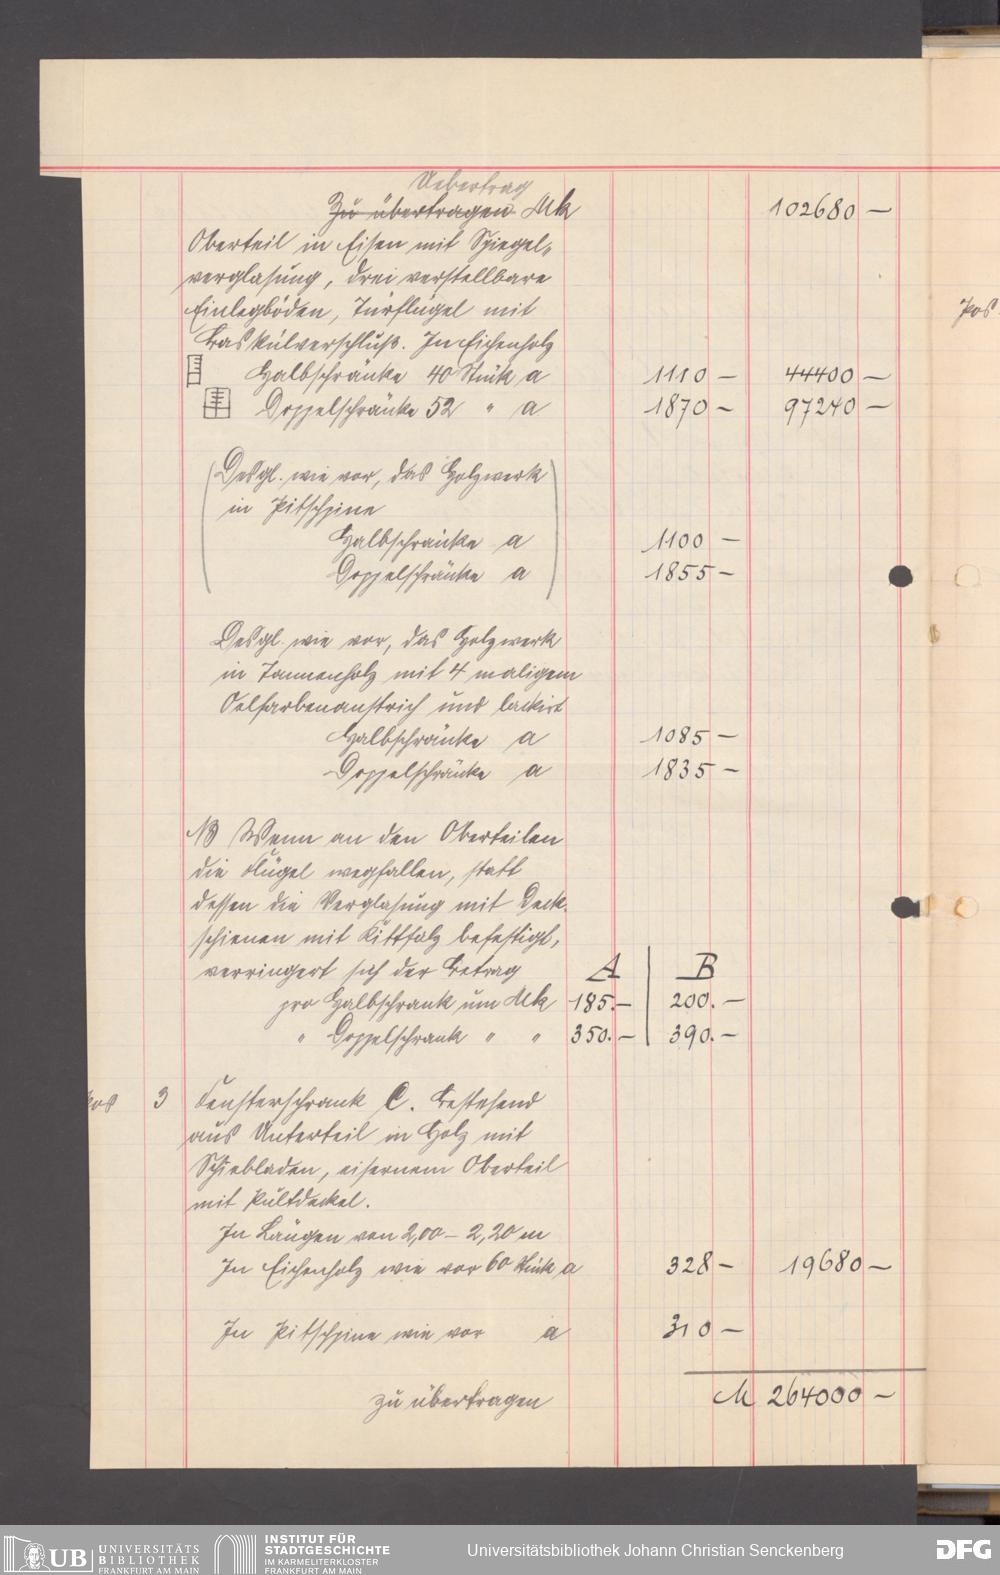 Uebertrag
Zu übertragen Mk 102680 —
Oberteil in Eisen mit Spiegel-
verglasung, drei verstellbare
Einlegböden, Türflügel mit
Baskülverschluß. In Eichenholz
Halbschränke 40 Stück a 1110 — 44400 —
Doppelschränke 52 " a 1870 — 97240 —
(Desgl. wie vor, das Holzwerk
in Pitschpine
Halbschränke a 1100 —
Doppelschränke a) 1855 —
Desgl. wie vor, das Holzwerk
in Tannenholz mit 4 maligem
Oelfarbenanstrich und lackirt
Halbschränke a 1085 —
Doppelschränke a 1835 —
NB Wenn an den Oberteilen
die Flügel wegfallen, statt
dessen die Verglasung mit Deck-
schienen mit Kittfalz befestigt,
verringert sich der Betrag A B
pro Halbschrank um Mk 185.— 200.—
" Doppelschrank " " 350.— 390.—
Pos 3 Fensterschrank C. Bestehend
aus Unterteil in Holz mit
Schiebladen, eisernem Oberteil
mit Pultdeckel.
In Längen von 2,00 — 2,20 m
In Eichenholz wie vor 60 Stück a 328 — 19680 —
In Pitschpine wie vor a 310 —
zu übertragen M 264000 —
Pos
UB UNIVERSITÄTS
BIBLIOTHEK
FRANKFURT AM MAIN
INSTITUT FÜR
STADTGESCHICHTE
IM KARMELITERKLOSTER
FRANKFURT AM MAIN
Universitätsbibliothek Johann Christian Senckenberg
DFG